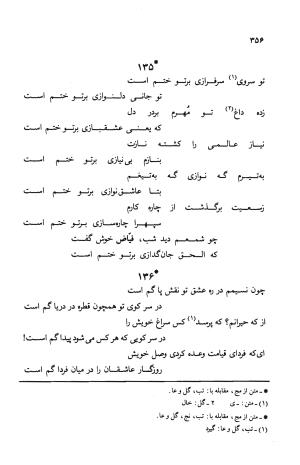 ۳۵۶
*۱۳۵
تو سروی(۱) سرفرازی برتو ختم است
تو جانی دلنوازی برتو ختم است
زده داغ(۲) تو مُهرم بردر دل
که یعنی عشقبازی برتو ختم است
نیاز عالمی را کشته نازت
بنازم بی‌نیازی برتو ختم است
به‌تیرم گه نوازی گه به‌تیغم
بتا عاشق‌نوازی برتو ختم است
زسعیت برگذشت از چاره کارم
سپهرا چاره‌سازی برتو ختم است
چو شمعم دید شب، فیّاض خوش گفت
که الحق جان‌گدازی برتو ختم است
*۱۳۶
چون نسیمم در ره عشق تو نقش پا گم است
در سر کوی تو همچون قطره در دریا گم است
از که حیرانم؟ که پرسد(۱) کس سراغ خویش را
در سر کویی که هر کس می‌شود پیدا گم است!
ای‌که فردای قیامت وعده کردی وصل خویش
روزگار عاشقان را در میان فردا گم است
* ـ متن از مج، مقابله با: تب، گل و عا.
(۱) ـ متن: ـ ی ۲ ـ گل: خال
* ـ متن از مج، مقابله با: تب، نج، گل و عا.
(۱) ـ تب، گل، عا: گیرد